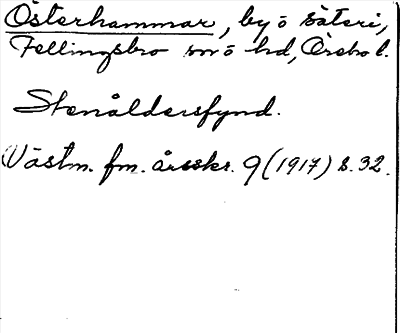 Österhammar, by o säteri,
Fellingsbro sn o hd, Örebro l.
Stenåldersfynd.
Västm. fm. årsskr. 9 (1917) s. 32.